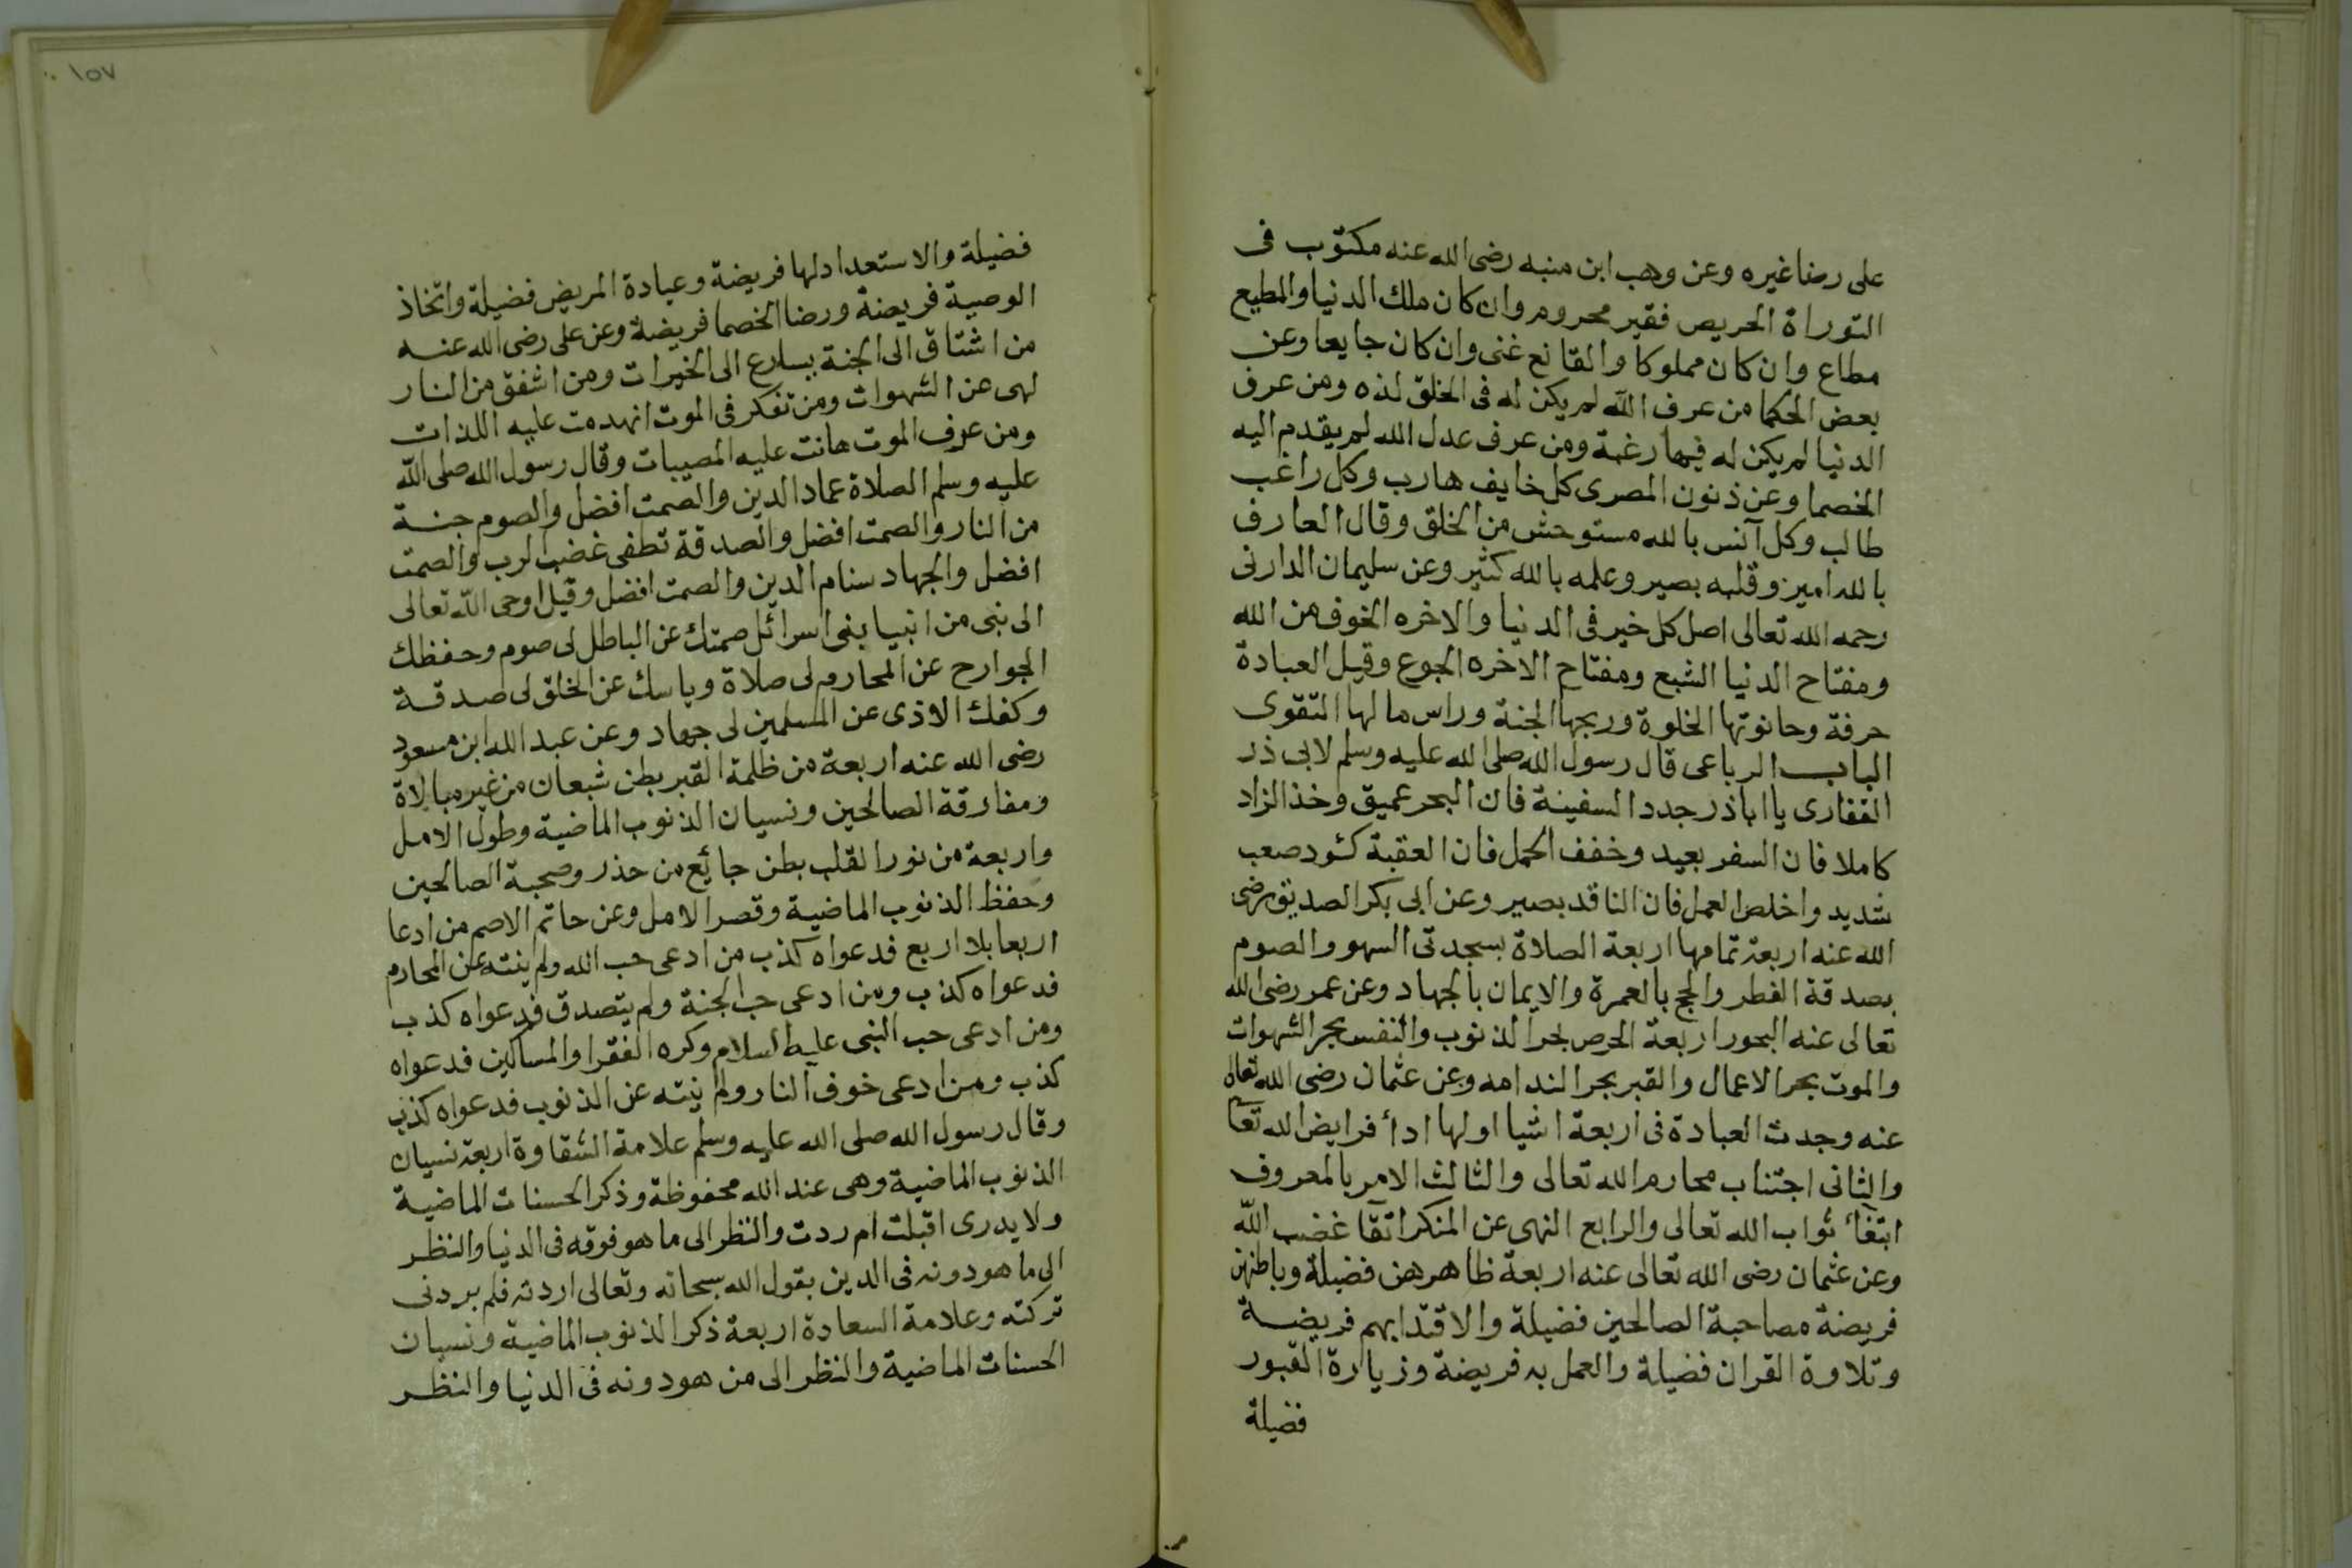 على رضا غيره وعن وهب ابن منبه رضى الله عنه مكتوب فى
التوراة الحريص فقير محروم وان كان ملك الدنيا والمطيع
مطاع وان كان مملوكا والقانع غنى وان كان جايعا وعن
بعض الحكما من عرف الله لم يكن له فى الخلق لذه ومن عرف
الدنيا لم يكن له فيها رغبة ومن عرف عدل الله لم يقدم اليه
الخصما وعن ذنون المصرى كل خايف هارب وكل راغب
طالب وكل آنس بالله مستوحش من الخلق وقال العارف
بالله امير وقلبه بصير وعلمه بالله كثير وعن سليمان الدارنى
رحمه الله تعالى اصل كل خير فى الدنيا والاخره الخوف من الله
ومفتاح الدنيا الشبع ومفتاح الاخره الجوع وقيل العبادة
حرفة وحانوتها الخلوة وربحها الجنة وراس مالها التقوى
الباب الرباعى قال رسول الله صلى الله عليه وسلم لابى ذر
الغفارى يا اباذر جدد السفينة فان البحر عميق وخذ الزاد
كاملا فان السفر بعيد وخفف الحمل فان العقبة كئود صعب
شديد واخلص العمل فان الناقد بصير وعن ابى بكر الصديق رضى
الله عنه اربعة تمامها اربعة الصلاة بسجدتى السهو والصوم
بصدقة الفطر والحج بالعمرة والايمان بالجهاد وعن عمر رضى الله
تعالى عنه البحور اربعة الحرص بحر الذنوب والنفس بحر الشهوات
والموت بحر الاعمال والقبر بحر الندامه وعن عثمان رضى الله تعالى
عنه وجدت العبادة فى اربعة اشيا اولها ادأ فرايض الله تعا
والثانى اجتناب محارم الله تعالى والثالث الامر بالمعروف
ابتغأ ثواب الله تعالى والرابع النهى عن المنكر اتقا غضب الله
وعن عثمان رضى الله تعالى عنه اربعة ظاهرهن فضيلة وباطنهن
فريضة مصاحبة الصالحين فضيلة والاقتدا بهم فريضة
وتلاوة القران فضيلة والعمل به فريضة وزيارة القبور
فضيلة
١٥٧
فضيلة والاستعداد لها فريضة وعيادة المريض فضيلة واتخاذ
الوصية فريضة ورضا الخصما فريضة وعن على رضى الله عنه
من اشتاق الى الجنة يسارع الى الخيرات ومن اشفق من النار
لهى عن الشهوات ومن تفكر فى الموت انهدمت عليه اللذات
ومن عرف الموت هانت عليه المصيبات وقال رسول الله صلى الله
عليه وسلم الصلاة عماد الدين والصمت افضل والصوم جنة
من النار والصمت افضل والصدقة تطفى غضب الرب والصمت
افضل والجهاد سنام الدين والصمت افضل وقيل اوحى الله تعالى
الى نبى من انبيا بنى اسرائل صمتك عن الباطل لى صوم وحفظك
الجوارح عن المحارم لى صلاة وياسك عن الخلق لى صدقة
وكفك الاذى عن المسلمين لى جهاد وعن عبد الله ابن مسعود
رضى الله عنه اربعة من ظلمة القبر بطن شبعان من غير مبالاة
ومفارقة الصالحين ونسيان الذنوب الماضية وطول الامل
واربعة من نور القلب بطن جائع من حذر وصحبة الصالحين
وحفظ الذنوب الماضية وقصر الامل وعن حاتم الاصم من ادعا
اربعا بلا اربع فدعواه كذب من ادعى حب الله ولم ينته عن المحارم
فدعواه كذب ومن ادعى حب الجنة ولم يتصدق فدعواه كذب
ومن ادعى حب النبى عليه السلام وكره الفقرا والمساكين فدعواه
كذب ومن ادعى خوف النار ولم ينته عن الذنوب فدعواه كذب
وقال رسول الله صلى الله عليه وسلم علامة الشقاوة اربعة نسيان
الذنوب الماضية وهى عند الله محفوظة وذكر الحسنات الماضية
ولا يدرى اقبلت ام ردت والنظر الى ما هو فوقه فى الدنيا والنظر
الى ما هو دونه فى الدين يقول الله سبحانه وتعالى اردته فلم يردنى
تركته وعلامة السعادة اربعة ذكر الذنوب الماضية ونسيان
الحسنات الماضية والنظر الى من هو دونه فى الدنيا والنظر